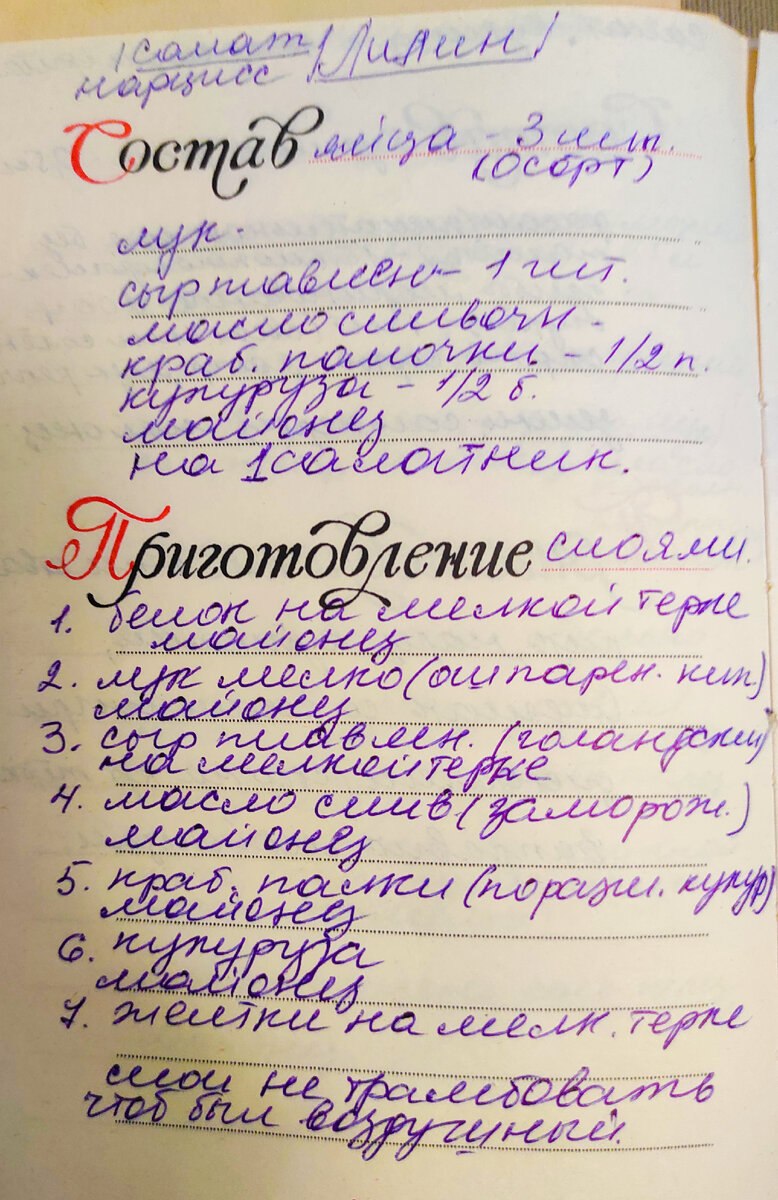 салат
нарцисс (Лилии)
Состав яйца - 3 шт.
лук.
сыр плавлен - 1 шт.
масло сливочн -
краб. палочки - 1/2 п.
кукуруза - 1/2 б.
майонез
на 1 салатник.
Приготовление слоями.
1. белок на мелкой терке
майонез
2. лук мелко (ошпарен. кип)
майонез
3. сыр плавлен. (голандский)
на мелкой терке
4. масло слив (заморож.)
майонез
5. краб. палки
майонез
6. кукуруза
майонез
7. желтки на мелк. терке
слои не трамбовать
чтоб был воздушный.